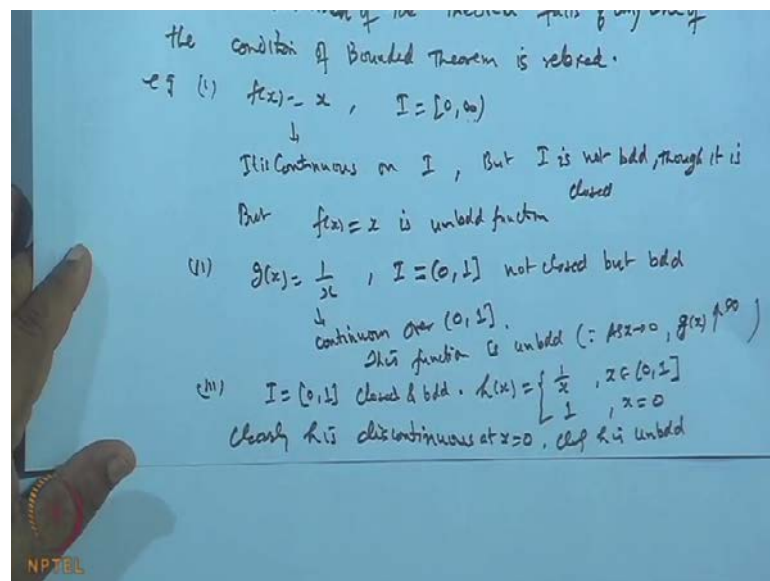 of the theorem fails if any one of
the condition of Bounded Theorem is relaxed.
eg (i) f(x) = x , I = [0, ∞)
↓
It is Continuous on I , But I is not bdd, though it is
closed
But f(x) = x is unbdd function
(ii) g(x) = 1/x , I = (0, 1] not closed but bdd
↓
continuous over (0, 1].
This function is unbdd (∵ As x→0, g(x) ↑ ∞)
(iii) I = [0, 1] closed & bdd. h(x) = { 1/x , x ∈ (0, 1]
1 , x = 0
Clearly h is discontinuous at x=0. h is unbdd
NPTEL